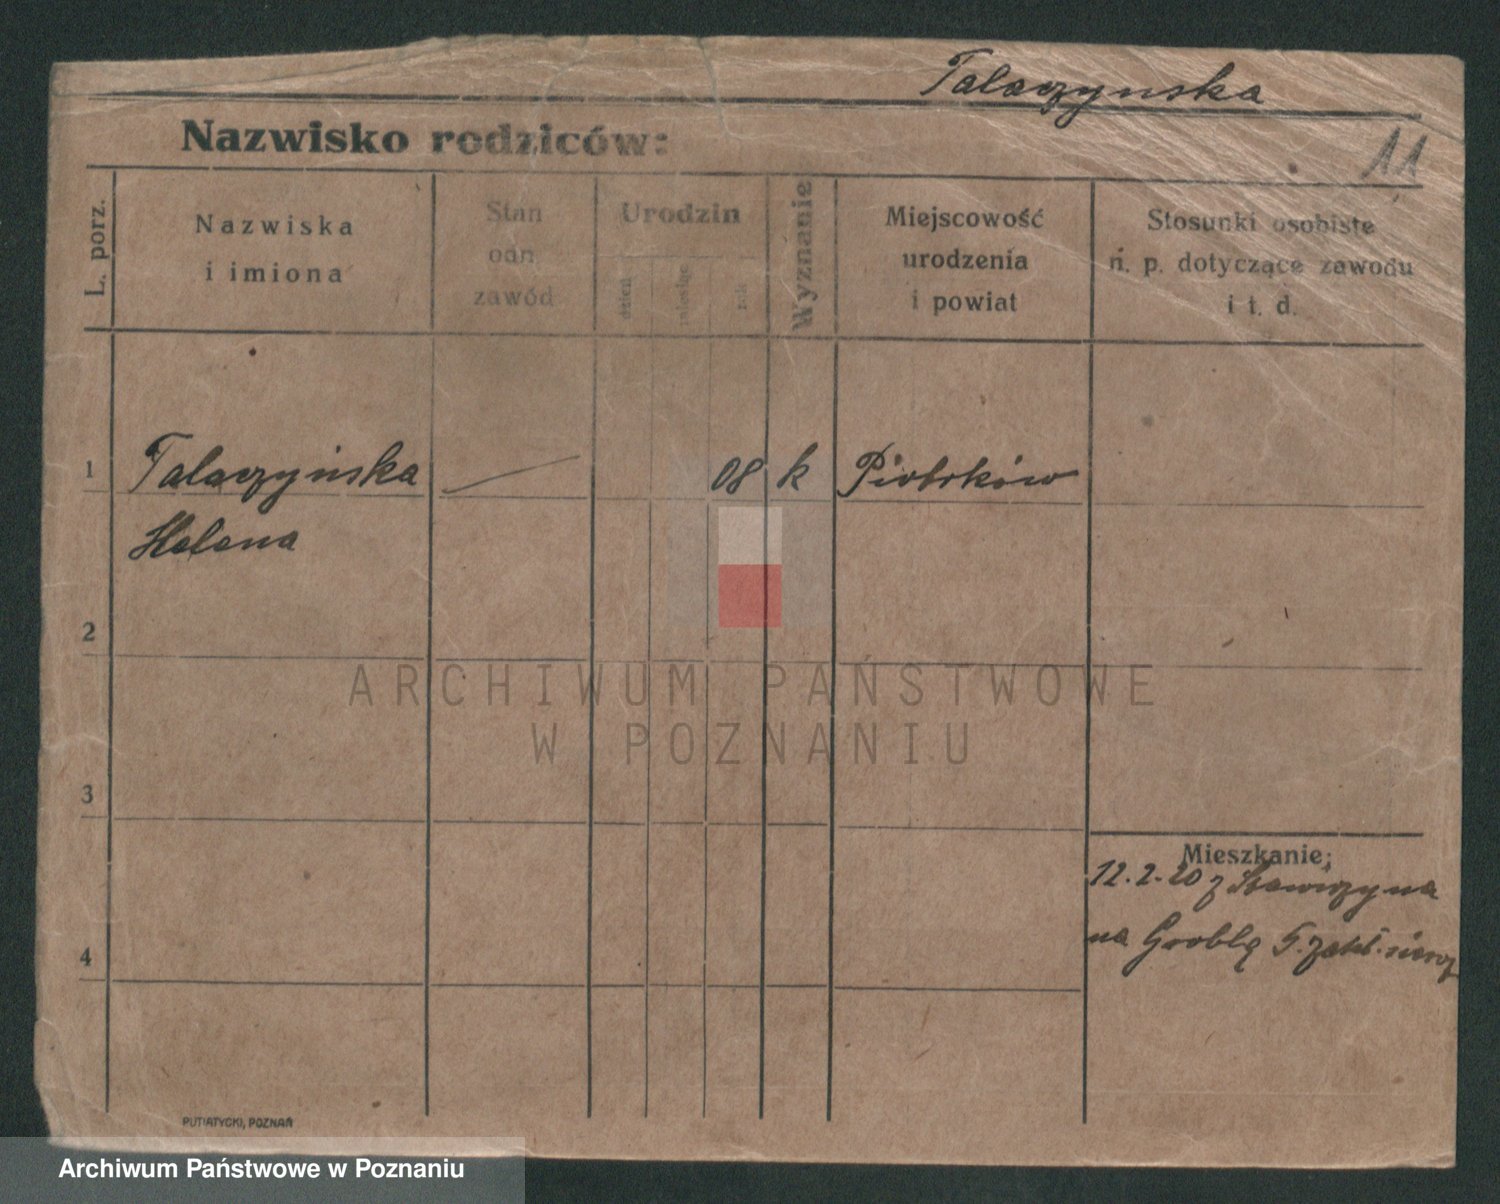 Talaczynska
Nazwisko rodziców:
11
L. porz.
Nazwiska
i imiona
Stan
odn
zawód
Urodzin
dzień
miesiąc
rok
Wyznanie
Miejscowość
urodzenia
i powiat
Stosunki osobiste
n. p. dotyczące zawodu
i t. d.
1
Talaczyńska
08
k
Piotrków
Helena
2
ARCHIWUM PAŃSTWOWE
W POZNANIU
3
Mieszkanie:
12.2.20 z
na Groblę
4
PUTIATYCKI, POZNAŃ
Archiwum Państwowe w Poznaniu